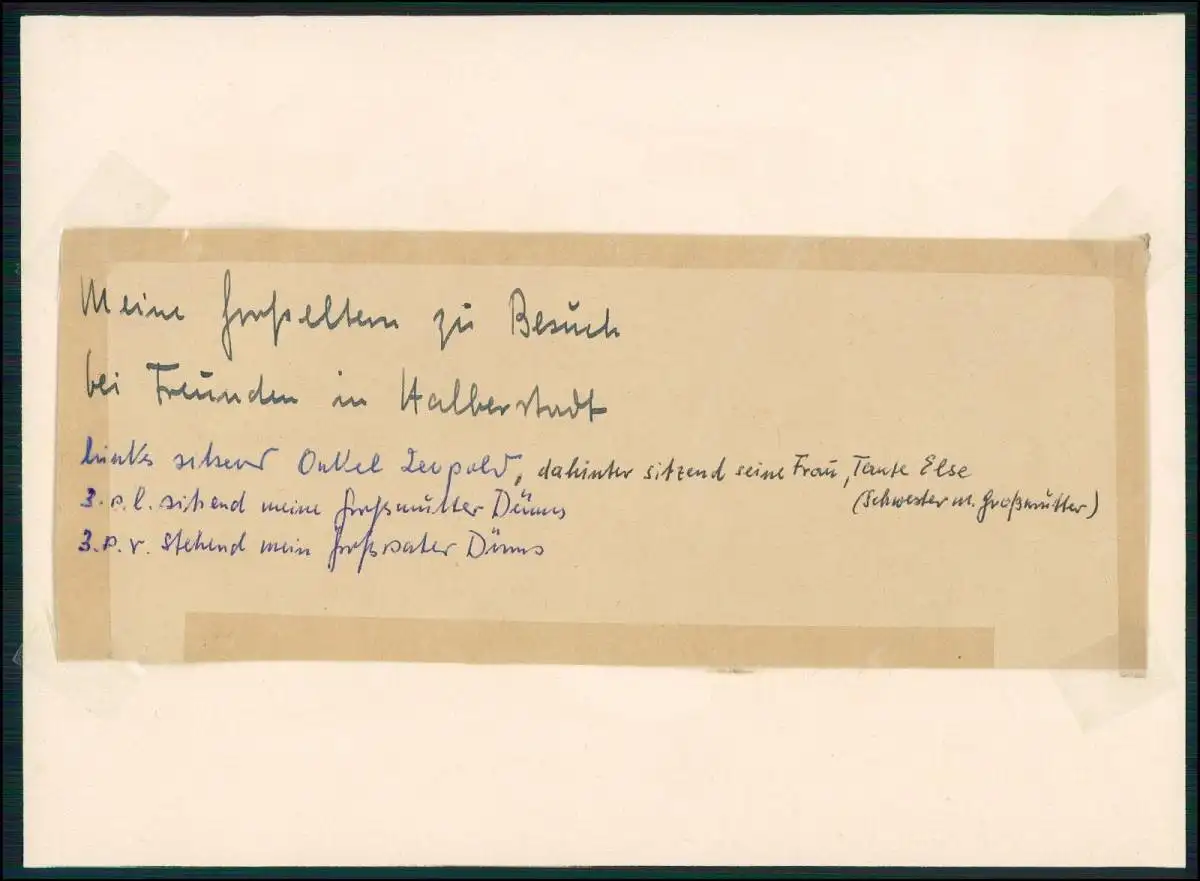 Meine Großeltern zu Besuch
bei Freunden in Halberstadt
links sitzend Onkel Leopold, dahinter sitzend seine Frau, Tante Else
(Schwester m. Großmutter)
3. v. l. sitzend meine Großmutter
3. v. r. stehend mein Großvater